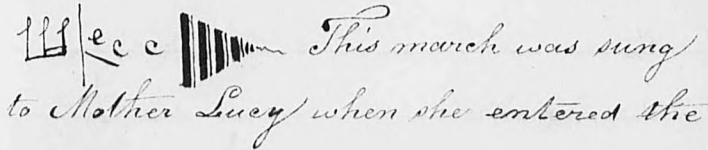 e c c This march was sung
to Mother Lucy when she entered the